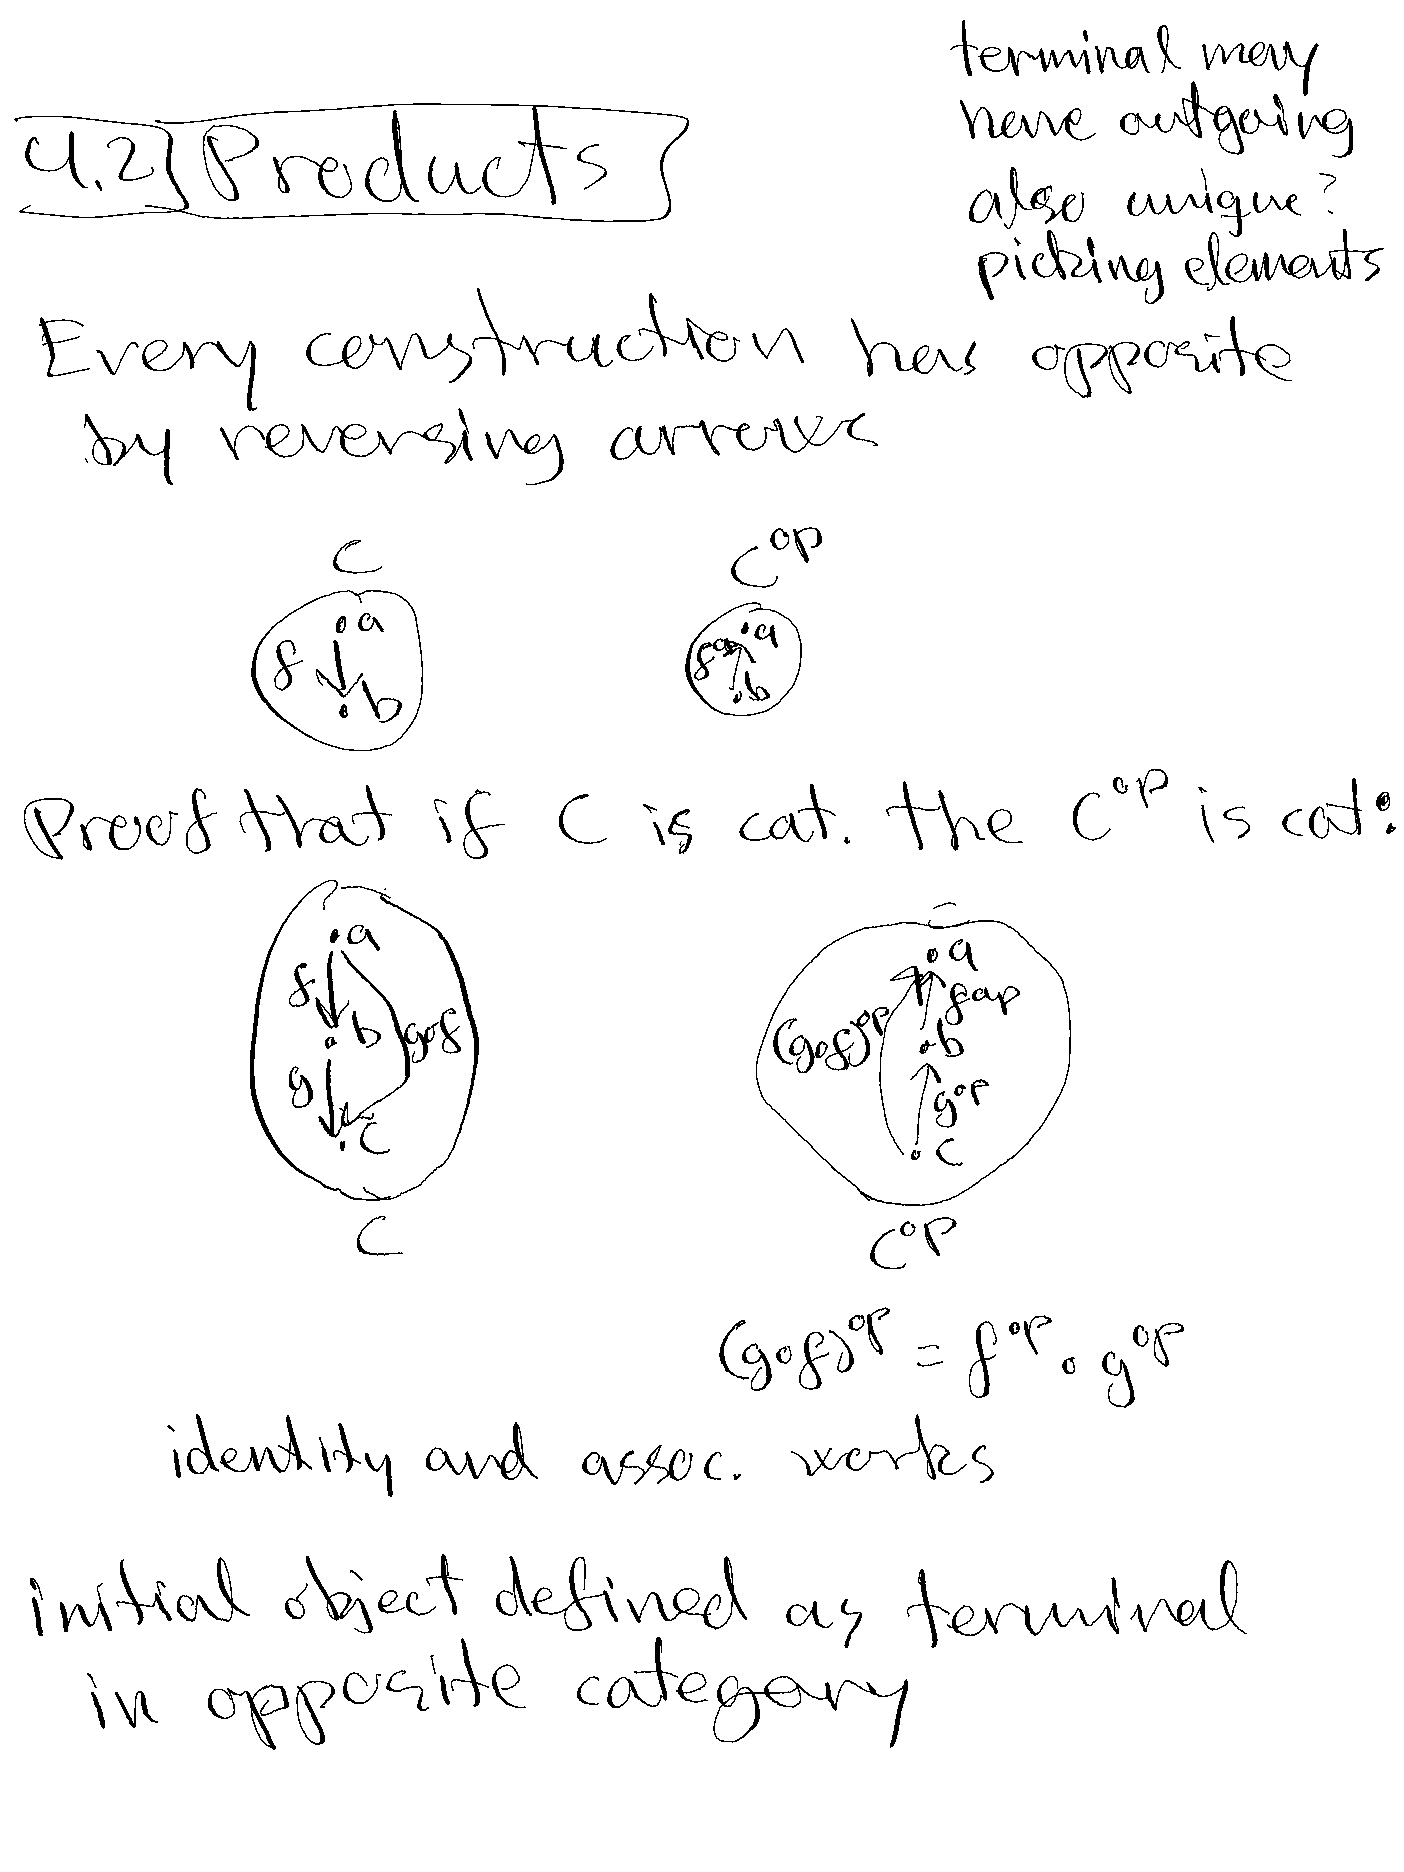 4.2 Products
terminal may
have outgoing
also unique?
picking elements
Every construction has opposite
by reversing arrows
C
C^op
a
f
b
a
f^op
b
Proof that if C is cat. the C^op is cat:
a
f
b
g∘f
g
c
C
a
(g∘f)^op
f^op
b
g^op
c
C^op
(g∘f)^op = f^op ∘ g^op
identity and assoc. works
initial object defined as terminal
in opposite category